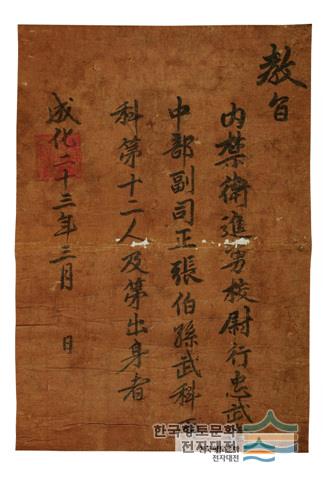 教旨
內禁衛進勇校尉行忠武
中部副司正張伯孫武科
科第十二人及第出身者
成化二十三年三月 日
한국향토문화
전자대전
전자대전